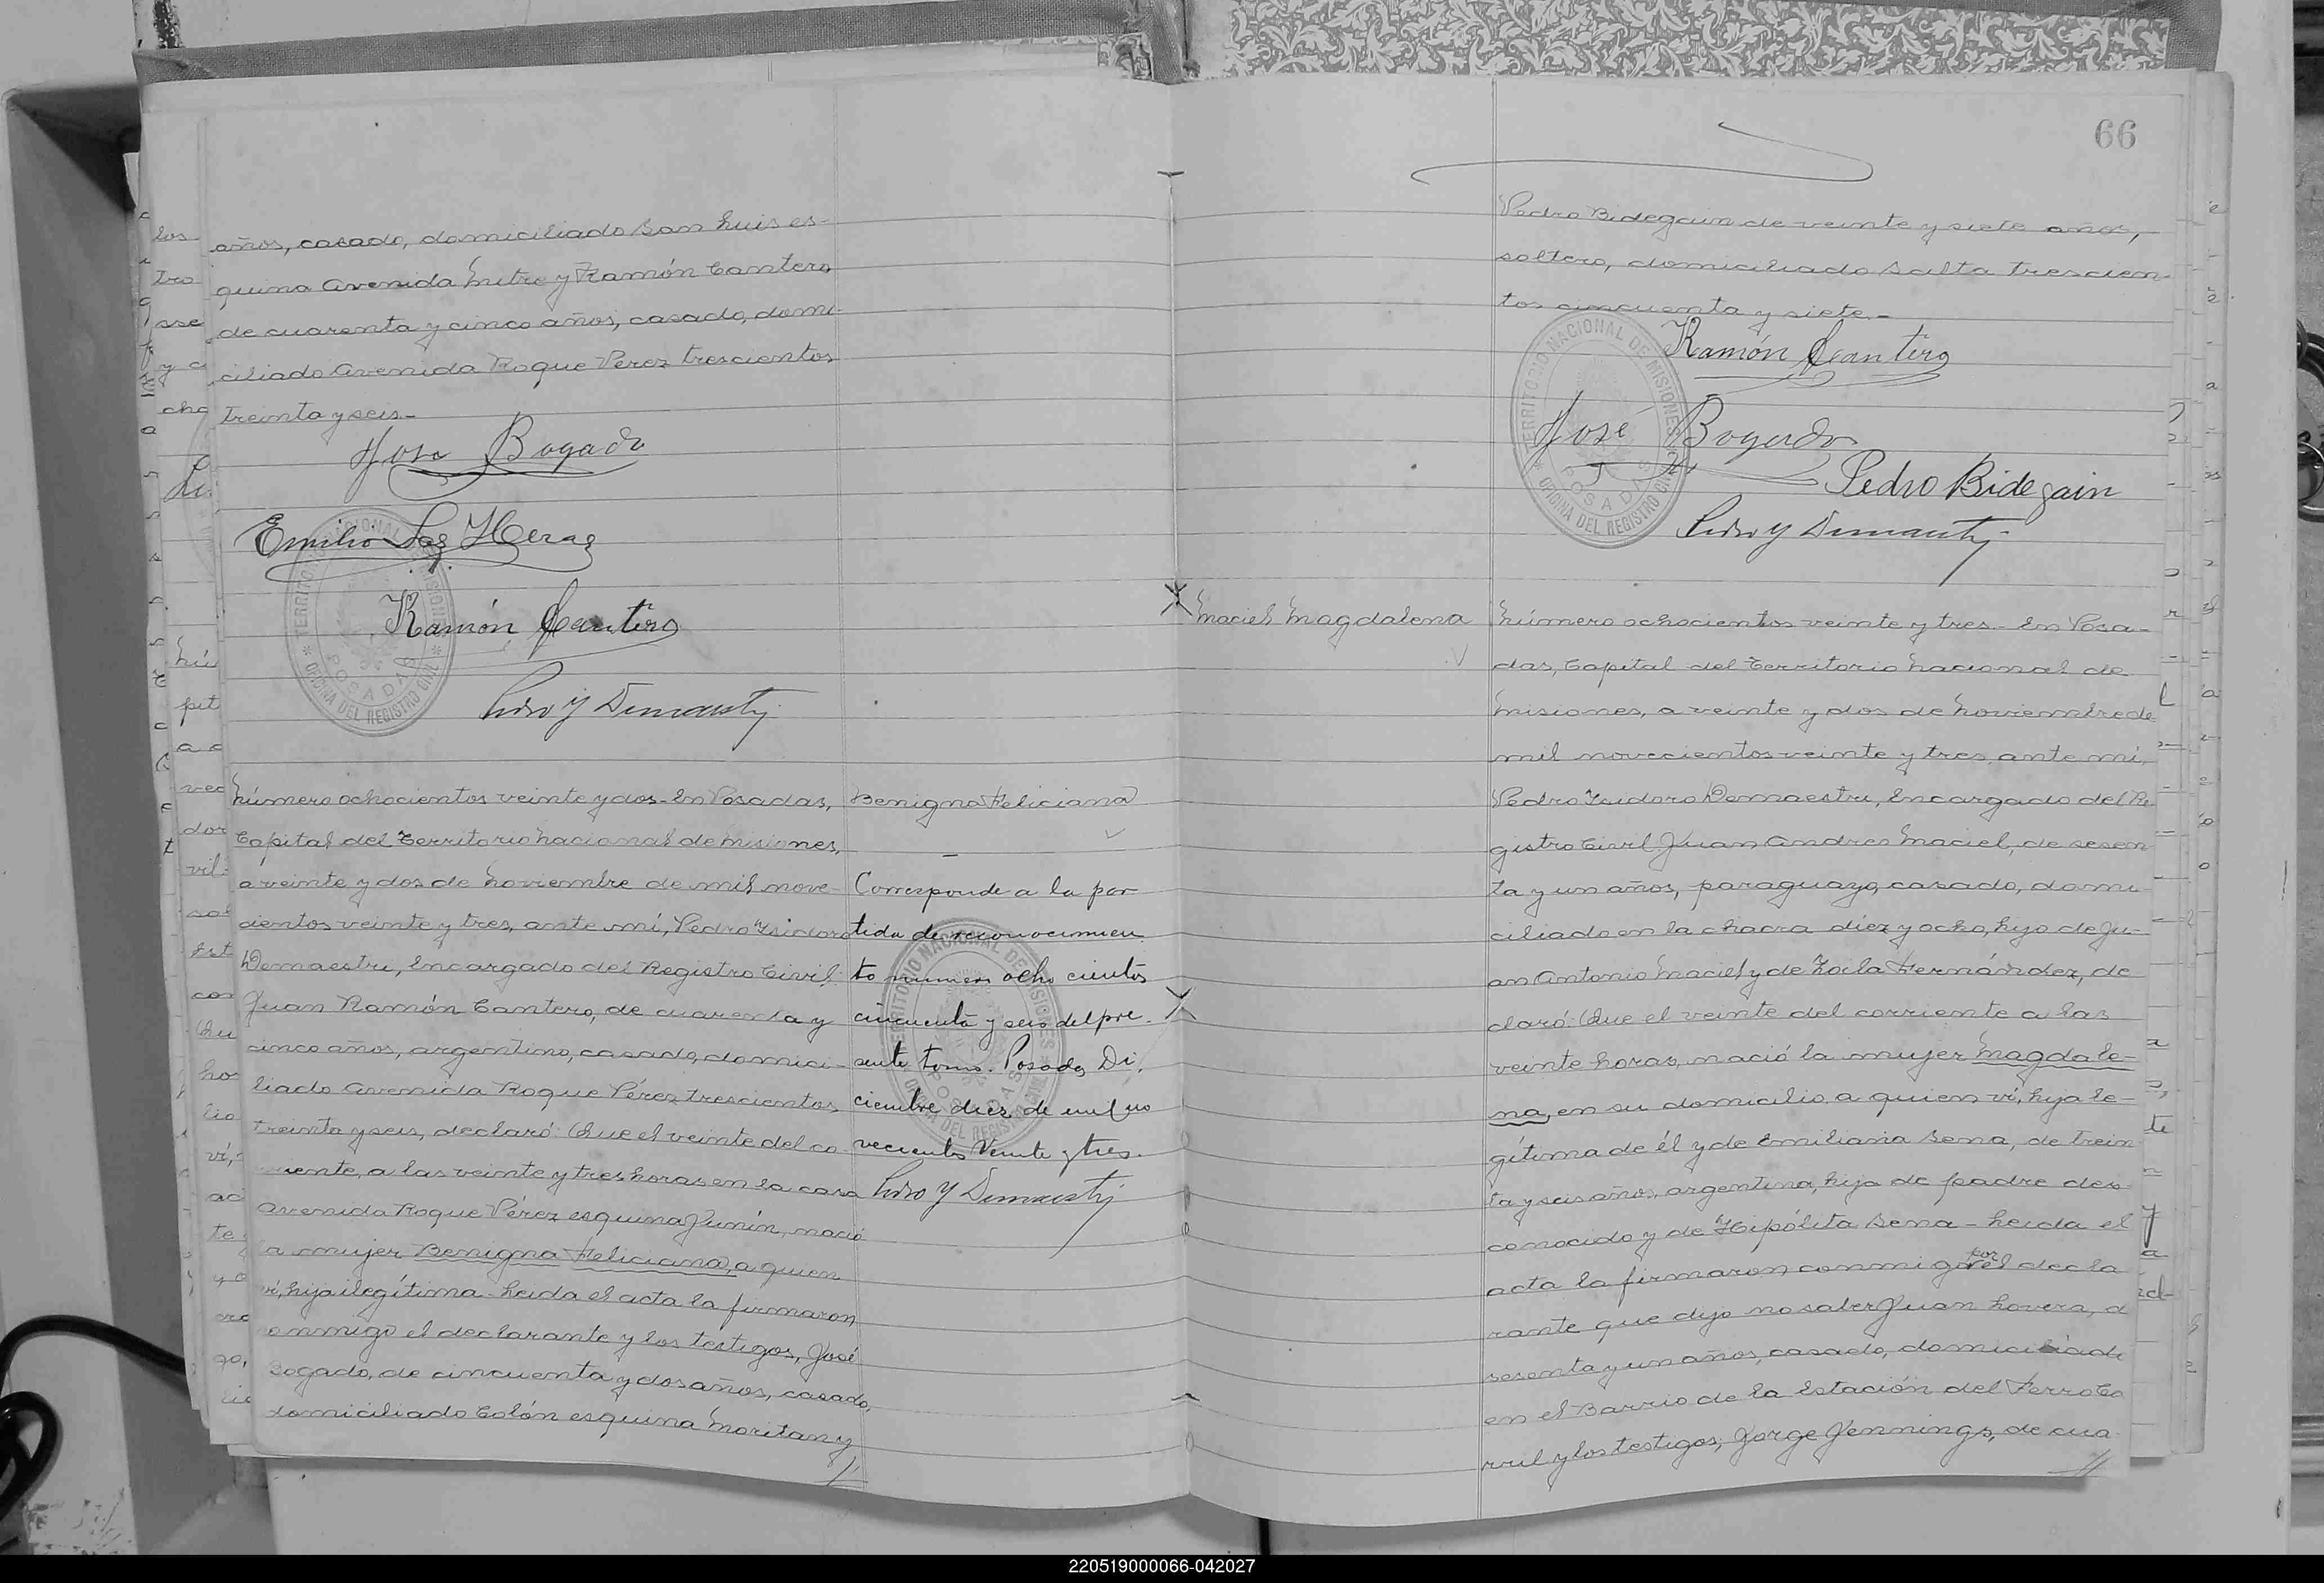 años, casado, domiciliado San Luis es-
quina Avenida Mitre y Ramón Cantero,
de cuarenta y cinco años, casado, domi-
ciliado Avenida Roque Pérez trescientos
treinta y seis.-
José Bogado
Emilio Las Heras
Ramón Cantero
Pedro Y Demaestri
TERRITORIO NACIONAL DE MISIONES
* OFICINA DEL REGISTRO CIVIL *
POSADAS
Número ochocientos veinte y dos- En Posadas,
Capital del Territorio Nacional de Misiones,
a veinte y dos de Noviembre de mil nove-
cientos veinte y tres, ante mí, Pedro Ysidoro
Demaestri, Encargado del Registro Civil,
Juan Ramón Cantero, de cuarenta y
cinco años, argentino, casado, domici-
liado Avenida Roque Pérez trescientos
treinta y seis, declaró: Que el veinte del co-
rriente, a las veinte y tres horas en la casa
Avenida Roque Pérez esquina Junín, nació
la mujer Benigna Feliciana, a quien
ví, hija ilegítima- Leida el acta la firmaron
conmigo el declarante y los testigos, José
Bogado, de cincuenta y dos años, casado,
domiciliado Colón esquina Moritan y
Benigna Feliciana
Corresponde a la par
tida de reconocimien
to numero ocho cientos
cincuenta y seis del pre-
sente tomo. Posadas, Di-
ciembre, diez de mil no
vecientos Veinte y tres.
Pedro Y Demaestri
TERRITORIO NACIONAL DE MISIONES
OFICINA DEL REGISTRO CIVIL
POSADAS
66
Pedro Bidegain de veinte y siete años,
soltero, domiciliado Salta trescien-
tos cincuenta y siete.-
Ramón Cantero
José Bogado
Pedro Bidegain
Pedro Y Demaestri
TERRITORIO NACIONAL DE MISIONES
* OFICINA DEL REGISTRO CIVIL
POSADAS
Maciel Magdalena
Número ochocientos veinte y tres- En Posa-
das, Capital del Territorio Nacional de
Misiones, a veinte y dos de Noviembre de
mil novecientos veinte y tres, ante mí,
Pedro Ysidoro Demaestri, Encargado del Re
gistro Civil Juan Andres Maciel, de sesen
ta y un años, paraguayo, casado, domi-
ciliado en la chacra diez y ocho, hijo de Ju-
an Antonio Maciel y de Zoila Fernández, de
claró: Que el veinte del corriente a las
veinte horas, nació la mujer Magdale-
na, en su domicilio a quien ví, hija le-
gítima de él y de Emiliana Sena, de trein
ta y seis años, argentina, hija de padre des
conocido y de Hipólita Sena- Leida el
acta la firmaron conmigo por el decla
rante que dijo no saber Juan Lovera, d
sesenta y un años, casado, domiciliado
en el Barrio de la Estación del FerroCa
rril y los testigos, Jorge Jennings, de cua
220519000066-042027